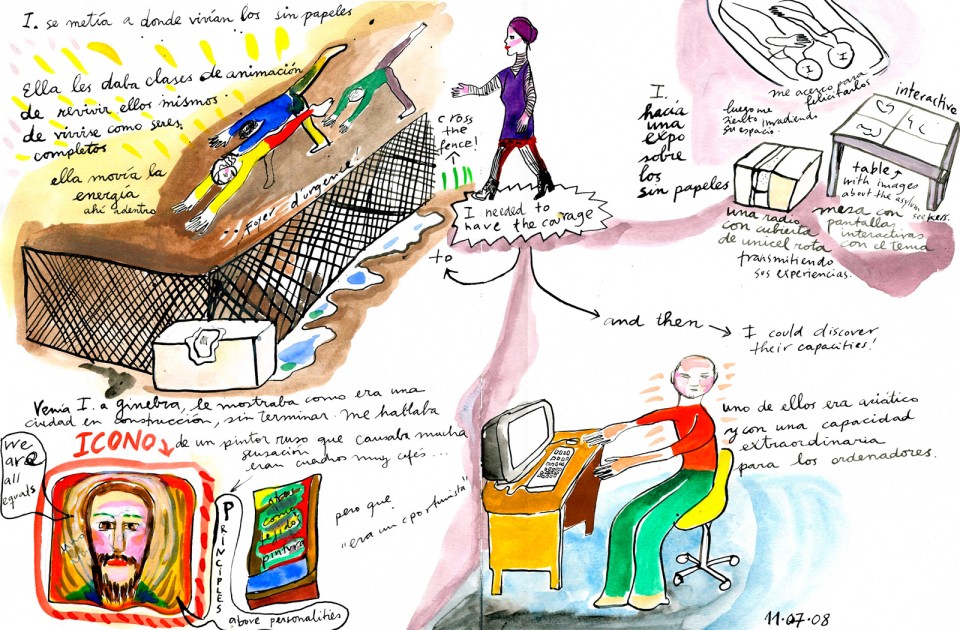 I. se metía a donde vivían los sin papeles
Ella les daba clases de animación
de revivir ellos mismos.
de vivirse como seres
completos
ella movía la
energía
ahí adentro
... Foyer d'urgence!
cross
the
fence!
I needed to
have the courage
to
and then
I could discover
their capacities!
I.
hacía
una
expo
sobre
los
sin papeles
me acerco para
felicitarlos
luego me
siento invadiendo
su espacio.
interactive
table
with images
about the asylum
seekers.
una radio
con cubierta
de unicel rota
transmitiendo
sus experiencias.
mesa con
pantallas
interactivas
con el tema
Venía I. a ginebra, le mostraba como era una
ciudad en construcción, sin terminar. me hablaba
ICONO
de un pintor ruso que causaba mucha
sensación
eran cuadros muy cafés...
we
are
all
equals
PRINCIPLES
above personalities
como
tejidos
pintura
pero que
"era un oportunista"
uno de ellos era asiático
y con una capacidad
extraordinaria
para los ordenadores.
11.07.08